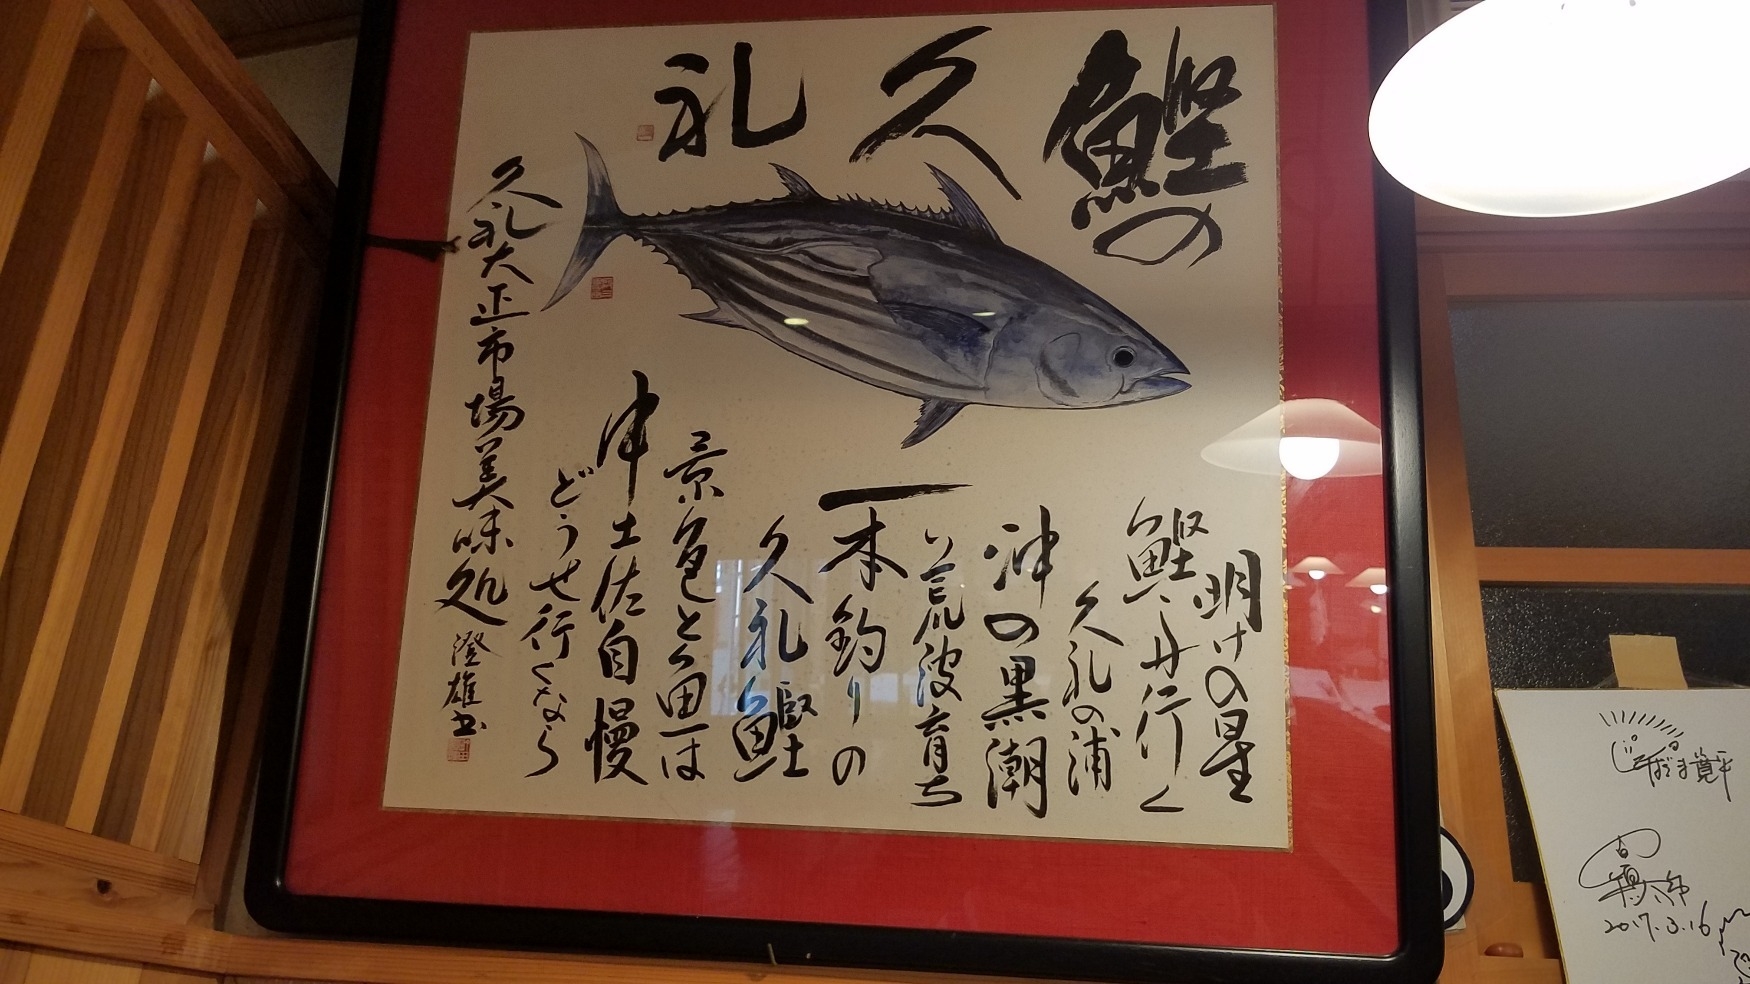 鰹の久礼
明けの星
鰹舟行く
久礼の浦
沖の黒潮
荒波育ち
一本釣りの
久礼鰹
景色と魚は
中土佐自慢
どうせ行くなら
久礼大正市場美味処
澄雄書
2017.3.16